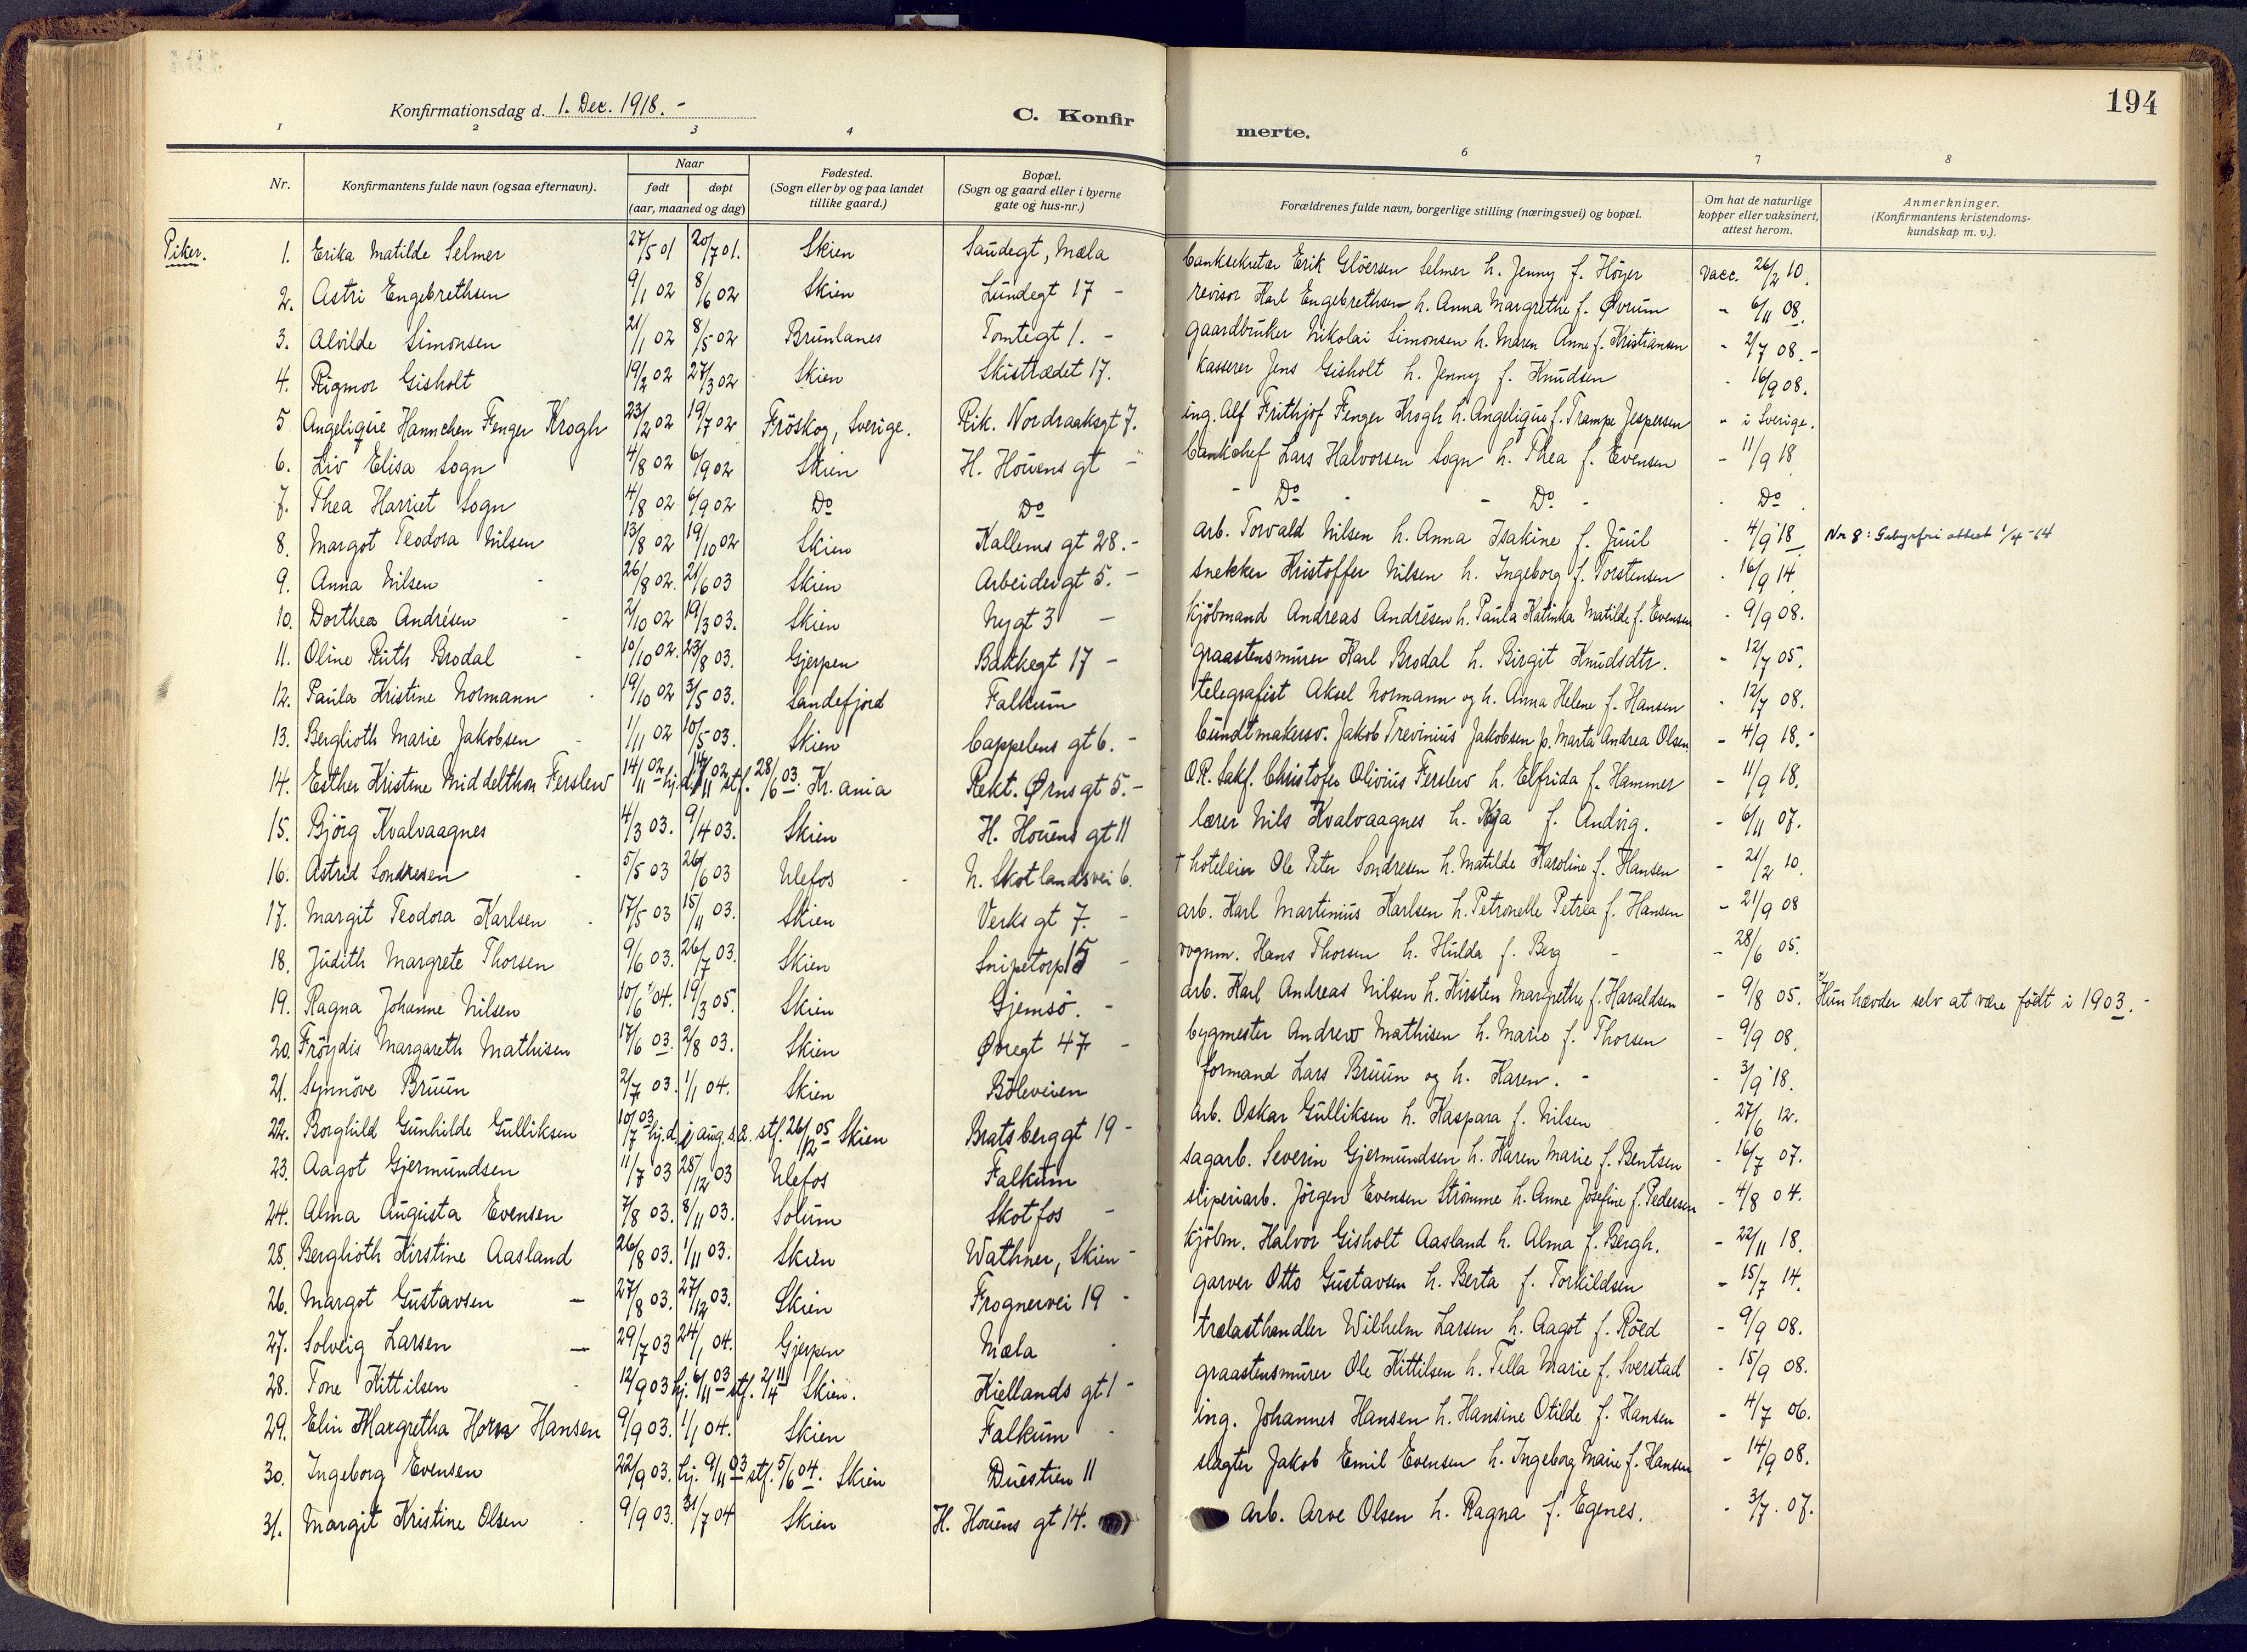 194
Konfirmationsdag d. 1. Dec. 1918. -
C. Konfir merte.
1 2 3 4 6 7 8
Nr. Konfirmantens fulde navn (ogsaa efternavn). Naar født døpt (aar, maaned og dag) Fødested. (Sogn eller by og paa landet tillike gaard.) Bopæl. (Sogn og gaard eller i byerne gate og hus-nr.) Forældrenes fulde navn, borgerlige stilling (næringsvei) og bopæl. Om hat de naturlige kopper eller vaksinert, attest herom. Anmerkninger. (Konfirmantens kristendoms-kundskap m. v.).
Piker. 1. Erika Matilde Selmer 27/5 01 20/7 01. Skien Saudegt, Mæla banksekretær Erik Glöersen Selmer h. Jenny f. Höyer vacc. 26/2 10.
2. Astri Engebrethsen 9/1 02 8/6 02 Skien Lundegt 17 - revisor Karl Engebrethsen h. Anna Margrethe f. Øvrum - 6/11 08.
3. Alvilde Simonsen 21/1 02 8/5 02 Brunlanes Tomtegt 1. - gaardbruker Nikolai Simonsen h. Maren Anne f. Kristiansen - 2/7 08. -
4. Rigmor Gisholt 19/2 02 27/3 02 Skien Skistrædet 17. kasserer Jens Gisholt h. Jenny f. Knudsen - 16/9 08.
5 Angelique Hannchen Fenger Krogh 23/2 02 19/7 02 Fröskog, Sverige. Rik. Nordraaksgt 7. ing. Alf Frithjof Fenger Krogh h. Angelique f. Trampe Jespersen - i Sverige.
6. Liv Elisa Sogn 4/8 02 6/9 02 Skien H. Houens gt - bankchef Lars Halvorsen Sogn h. Thea f. Evensen - 11/9 18
7. Thea Harriet Sogn 4/8 02 6/9 02 Do Do - Do - - Do - - Do
8. Margot Teodora Nilsen 13/8 02 19/10 02 Skien Kallems gt 28. - arb. Torvald Nilsen h. Anna Isakine f. Juul - 4/9 18 Nr 8: Gebyrfri attest 1/4-64
9. Anna Nilsen 26/8 02. 21/6 03 Skien Arbeidergt 5. - snekker Kristoffer Nilsen h. Ingeborg f. Torstensen - 16/9 14.
10. Dorthea Andrésen - 2/10 02 19/3 03. Skien Nygt 3 - kjöbmand Andreas Andrésen h. Paula Katinka Matilde f. Evensen - 9/9 08.
11. Oline Ruth Brodal - 10/10 02. 23/8 03. Gjerpen Bakkegt 17 - graastensmurer Karl Brodal h. Birgit Knudsdtr. - 12/7 05.
12. Paula Kristine Normann - 19/10 02 3/5 03. Sandefjord Falkum telegrafist Aksel Normann og h. Anna Helene f. Hansen - 12/7 08.
13. Berglioth Marie Jakobsen - 1/11 02 10/5 03. Skien Cappelens gt 6. - bundtmakersv. Jakob Trevinius Jakobsen p. Marta Andrea Olsen - 4/9 18. -
14. Esther Kristine Middelthon Ferslew 14/11 02 hj. d. 14/11 02 stf. 28/6 03. Kr.ania Rekt. Ørns gt 5. - O.R. sakf. Christofer Olivius Ferslew h. Elfrida f. Hammer - 11/9 18.
15. Björg Kvalvaagnes 4/3 03. 9/4 03. Skien H. Houens gt 11 lærer Nils Kvalvaagnes h. Kaja f. Andvig. - 6/11 07.
16. Astrid Sondresen - 5/5 03 26/6 03 Ulefos - N. Skotlandsvei 6. † hoteleier Ole Peter Sondresen h. Matilde Karoline f. Hansen - 21/2 10.
17. Margit Teodora Karlsen - 17/5 03 15/11 03. Skien Verks gt 7. - arb. Karl Martinius Karlsen h. Petronelle Petrea f. Hansen - 21/9 08
18. Judith Margrete Thorsen 9/6 03. 26/7 03. Skien Snipetorp 15 - vognm. Hans Thorsen h. Hulda f. Berg - - 28/6 05.
19. Ragna Johanne Nilsen 10/6 04. 19/3 05. Skien Gjemsö. - arb. Karl Andreas Nilsen h. Kirsten Margrethe f. Haraldsen - 9/8 05. Hun hævder selv at være födt i 1903. -
20. Fröydis Margareth Mathisen 17/6 03. 2/8 03. Skien Øvregt 47 - bygmester Andrew Mathisen h. Marie f. Thorsen - 9/9 08.
21. Synnöve Bruun 2/7 03. 1/1 04. Skien Böleveien formand Lars Bruun og h. Karen. - - 3/9 18.
22. Borghild Gunhilde Gulliksen 10/7 03 hj. d. i aug. s. a. stf. 26/12 05 Skien Bratsberggt 19 - arb. Oskar Gulliksen h. Kaspara f. Nilsen - 27/6 12.
23. Aagot Gjermundsen 11/7 03 25/12 03 Ulefos Falkum sagarb. Severin Gjermundsen h. Karen Marie f. Bentsen - 16/7 07.
24. Alma Augusta Evensen 7/8 03. 8/11 03. Solum Skotfos - sliperiarb. Jörgen Evensen Strömme h. Anne Josefine f. Pedersen - 4/8 04.
25. Berglioth Kirstine Aasland 26/8 03. 1/11 03. Skien Wathner, Skien - kjöbm. Halvor Gisholt Aasland h. Alma f. Bergh. - 22/11 18.
26. Margot Gustavsen - 27/8 03. 27/12 03. Skien Frognervei 19 - garver Otto Gustavsen h. Berta f. Torkildsen - 15/7 14.
27. Solveig Larsen - 29/7 03 24/1 04. Gjerpen Mæla - trælasthandler Wilhelm Larsen h. Aagot f. Röed - 9/9 08.
28. Tone Kittilsen - 12/9 03 hj. 6/11 03 stf. 2/4 11 Skien. Kiellands gt 1 - graastensmurer Ole Kittilsen h. Tella Marie f. Sverstad - 15/9 08.
29. Elin Margretha Horn Hansen 9/9 03. 1/1 04. Skien Falkum - ing. Johannes Hansen h. Hansine Otilde f. Hansen - 4/7 06.
30. Ingeborg Evensen 22/9 03. hj. 9/11 03 stf. 5/6 04. Skien Duestien 11 slagter Jakob Emil Evensen h. Ingeborg Marie f. Hansen - 14/9 08.
31. Margit Kristine Olsen - 9/9 03. 31/7 04 Skien H. Houens gt 14. arb. Arve Olsen h. Ragna f. Egenes. - 3/7 07.